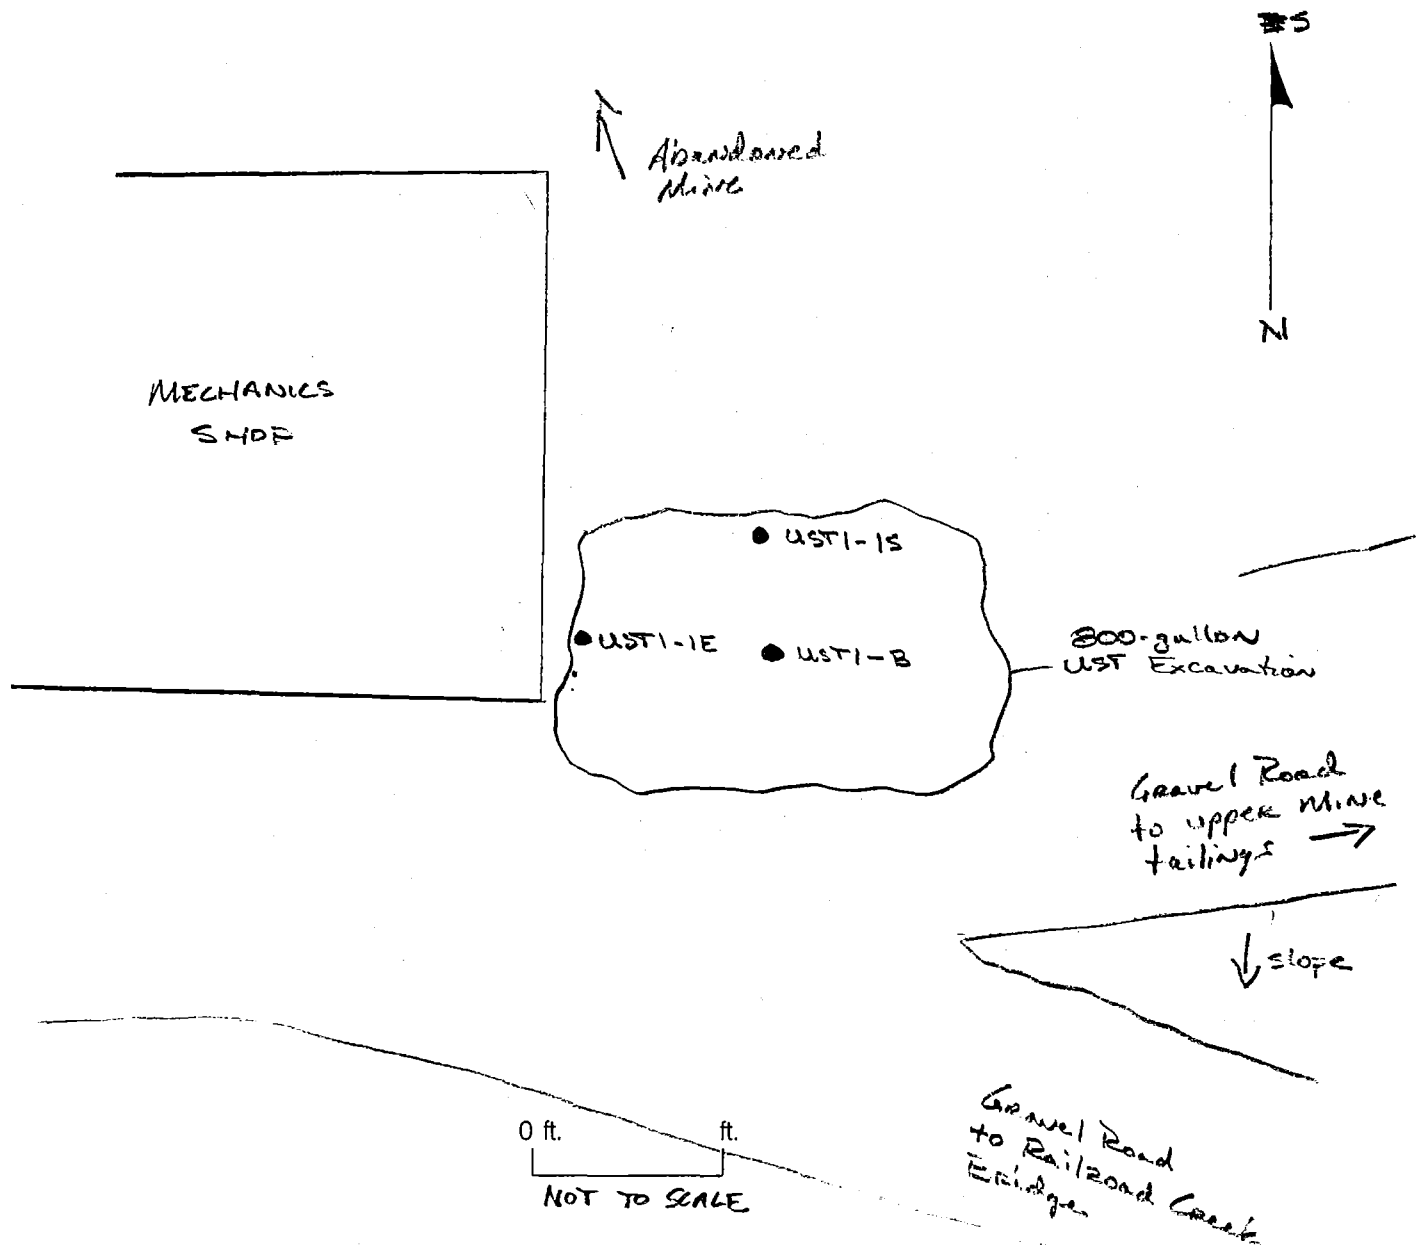 S
Abandoned
Mine
N
MECHANICS
SHOP
UST1-1S
UST1-1E
UST1-B
800-gallon
UST Excavation
Gravel Road
to upper Mine
tailings
slope
Gravel Road
to Railroad Creek
Bridge
0 ft.
ft.
NOT TO SCALE